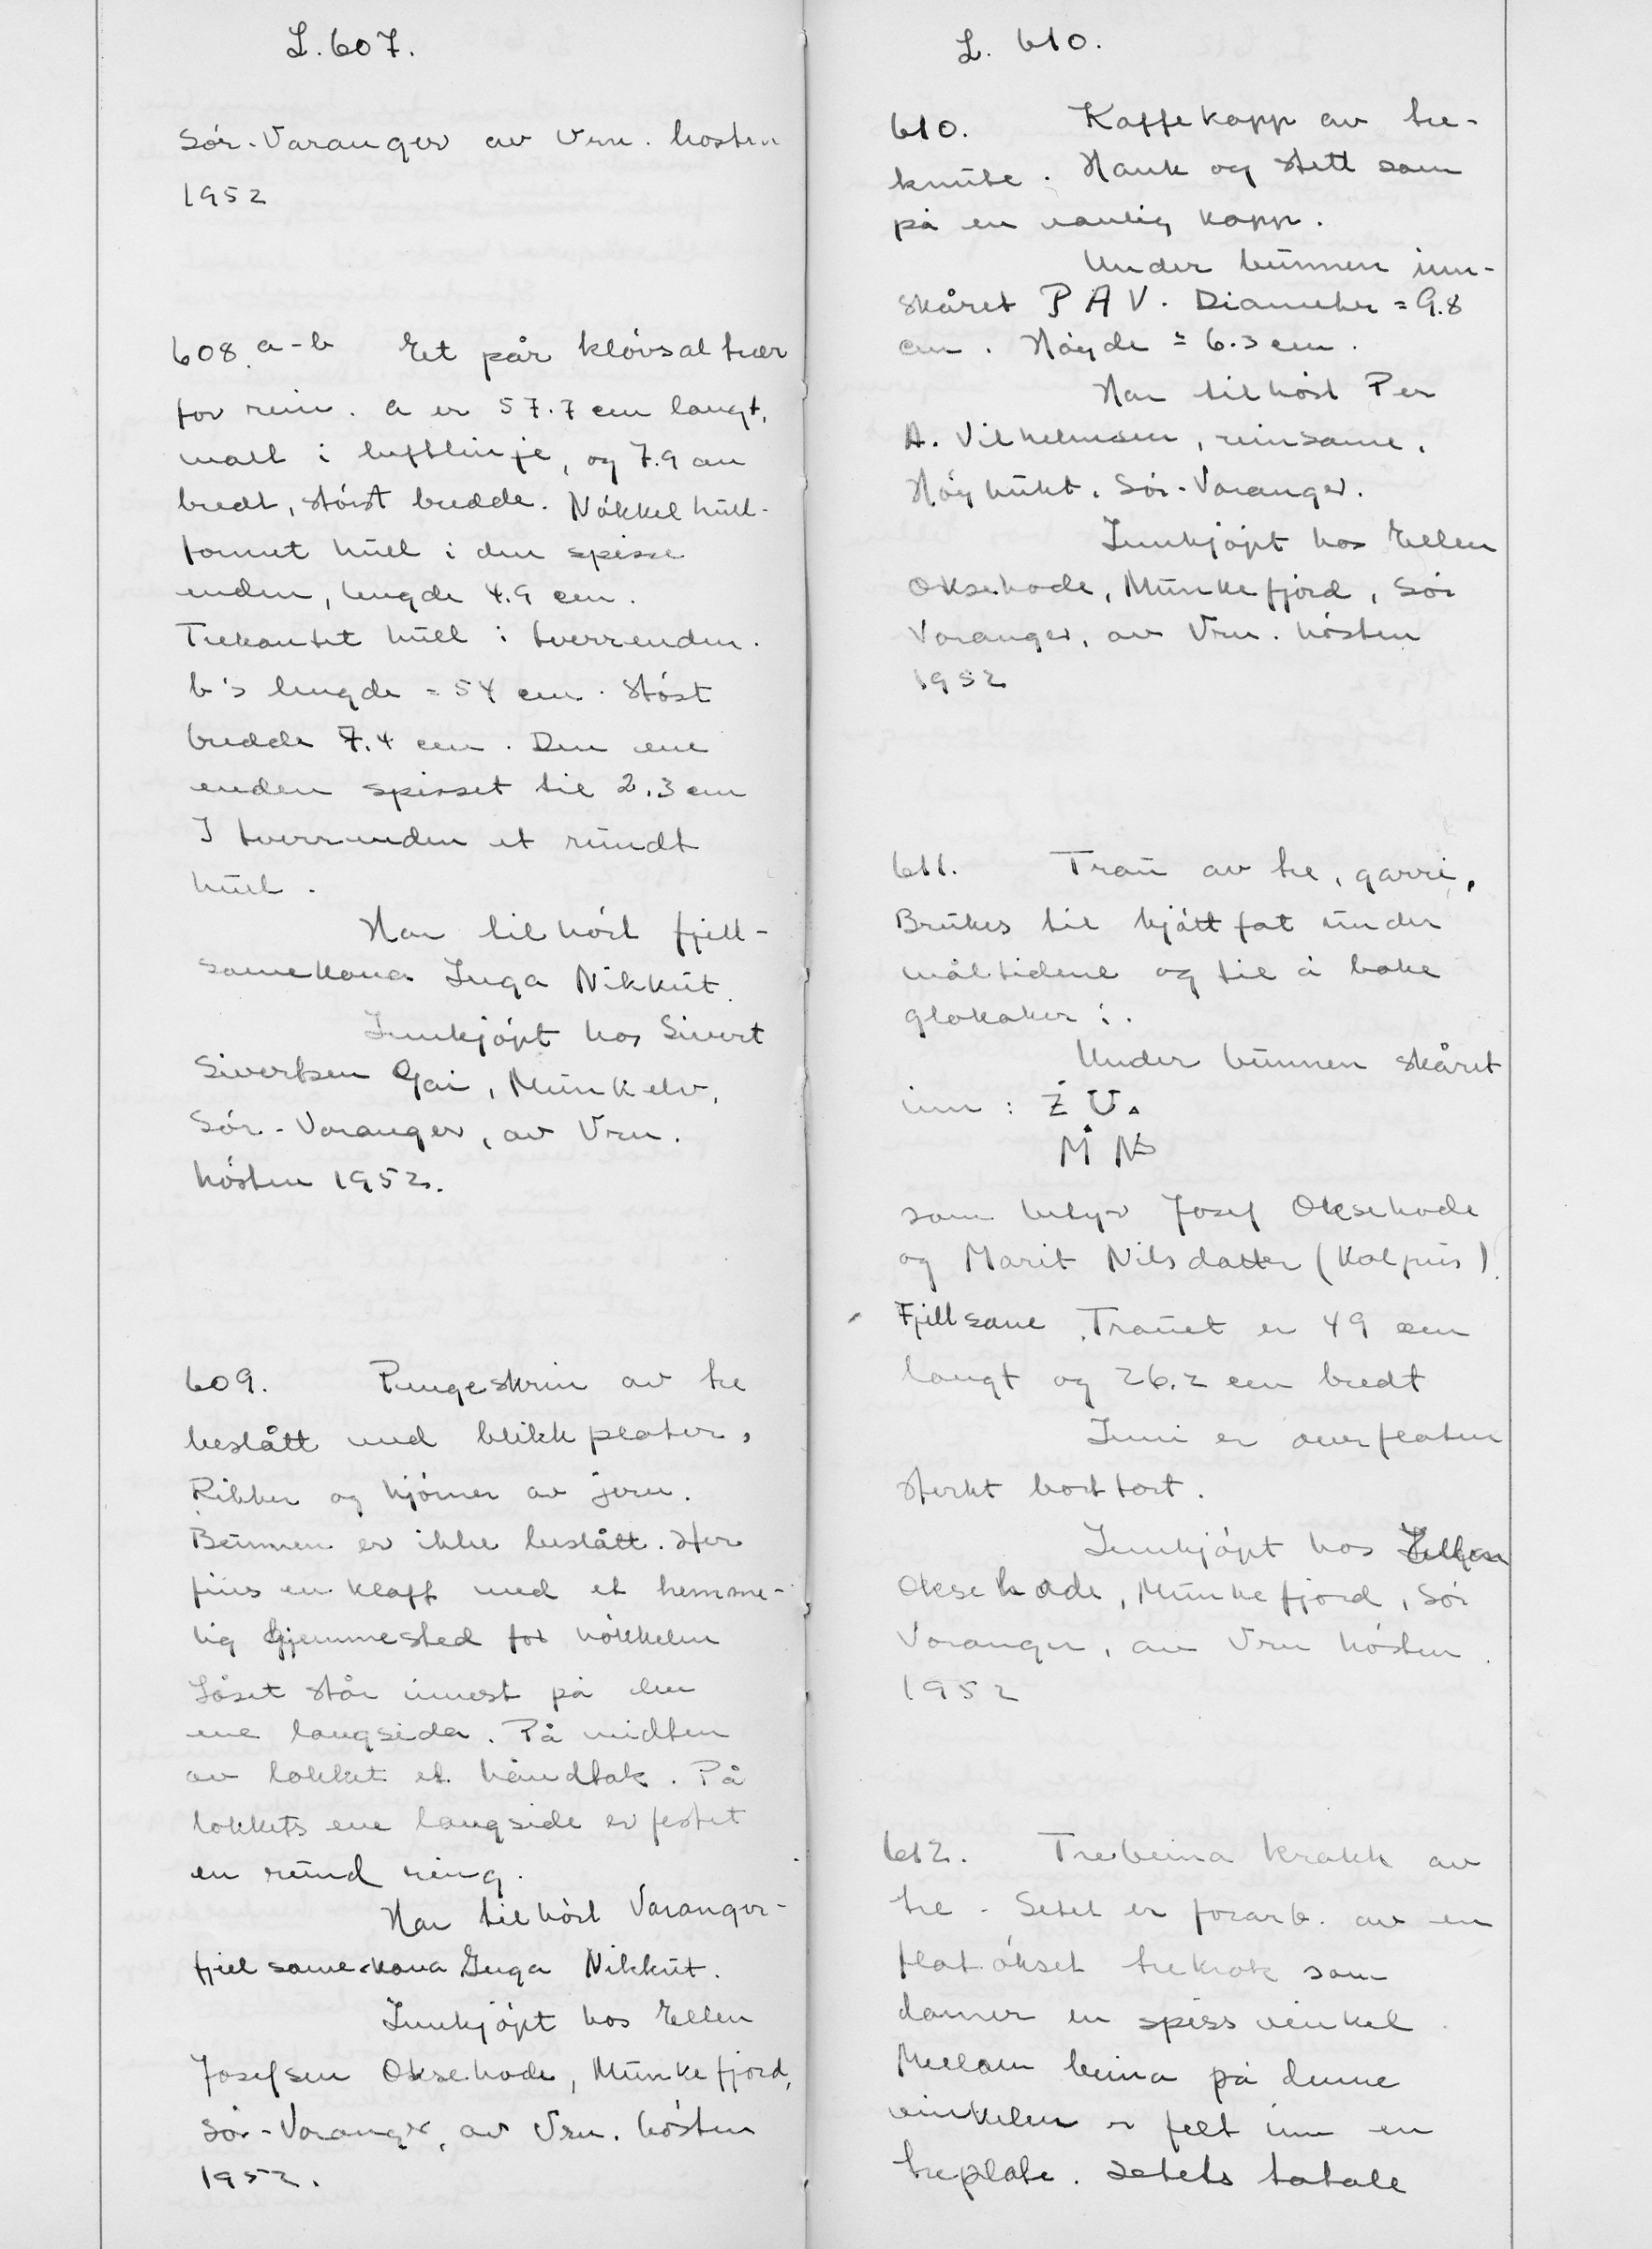 L. 607.
Sør-Varanger av Vrn. høsten
1952
608. a-b Et pår kløvsaltrær
for rein. a er 57.7 cm langt,
målt i luftlinje, og 7.9 cm
bredt, størst bredde. Nøkkelhull-
formet hull i den spisse
enden, lengde 4.9 cm.
Trekantet hull i tverrenden.
b's lengde = 54 cm. Støst
bredde 7.4 cm. Den ene
enden spisset til 2.3 cm
I tverrenden et rundt
hull.
Har tilhørt fjell-
samekona Inga Nikkut.
Innkjøpt hos Sivert
Sivertsen Gai, Munkelv,
Sør-Varanger, av Vrn.
høsten 1952.
609. Pengeskrin av tre
beslått med blikkplater,
Ribber og hjørner av jern.
Bunnen er ikke beslått. Her
fins en klaff med et hemme-
lig gjemmested for nøkkelen
Låset står innerst på den
ene langsida. På midten
av lokket et håndtak. På
lokkets ene langside er festet
en rund ring.
Har tilhørt Varanger-
fjellsamekona Inga Nikkut.
Innkjøpt hos Ellen
Josefsen Oksehode, Munkefjord,
Sør-Varanger, av Vrn. høsten
1952.
L. 610.
610. Kaffekopp av tre-
knute. Hank og stett som
på en vanlig kopp.
Under bunnen inn-
skåret P A V. Diameter = 9.8
cm. Høyde = 6.3 cm.
Har tilhørt Per
A. Vilhelmsen, reinsame,
Høybukt, Sør-Varanger.
Innkjøpt hos Ellen
Oksehode, Munkefjord, Sør
Varanger, av Vrn. høsten
1952
611. Trau av tre, garri,
Brukes til kjøttfat under
måltidene og til å bake
glokaker i.
Under bunnen skåret
inn: Z U.
M N
som betyr Josef Oksehode
og Marit Nilsdatter (Kalpus).
Fjellsame. Trauet er 49 cm
langt og 26.2 cm bredt
Inni er overflaten
sterkt borttørt.
Innkjøpt hos Ellen
Oksehode, Munkefjord, Sør
Varanger, av Vrn høsten
1952
612. Trebeina krakk av
tre. Setet er forarb. av en
flatøkset trekrok som
danner en spiss vinkel.
Mellom beina på denne
vinkelen er felt inn en
treplate. Setets totale